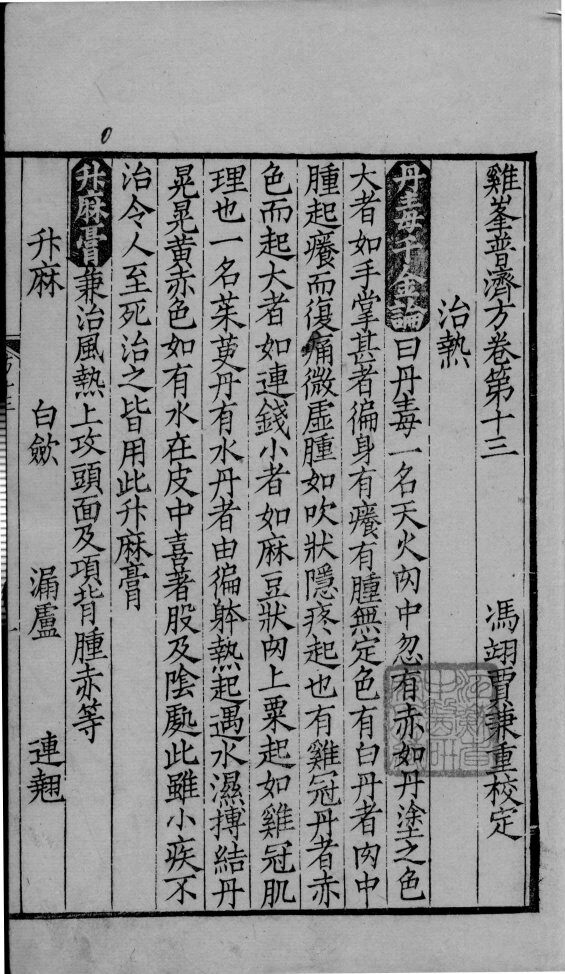 雞峯普濟方卷第十三　馮翊賈兼重校定
治熱
丹毒千金論曰丹毒一名天火肉中忽有赤如丹塗之色
大者如手掌甚者徧身有癢有腫無定色有白丹者肉中
腫起癢而復痛微虛腫如吹狀隱疼起也有雞冠丹者赤
色而起大者如連錢小者如麻豆狀肉上粟起如雞冠肌
理也一名茱萸丹有水丹者由徧躰熱起遇水濕搏結丹
晃晃黃赤色如有水在皮中喜著股及陰處此雖小疾不
治令人至死治之皆用此升麻膏
升麻膏兼治風熱上攻頭面及項背腫赤等
升麻　白斂　漏盧　連翹